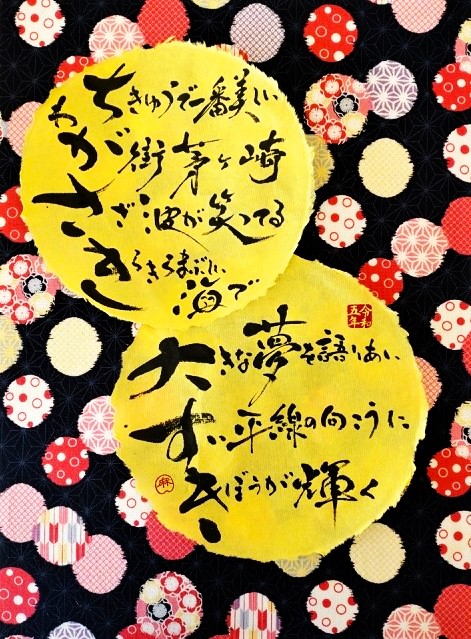 ちきゅうで一番美しい
わが街茅ヶ崎
さざ波が笑ってる
きらきらまぶしい
海で
令和
五年
大きな夢を語りあい
すい平線の向こうに
きぼうが輝く
麻